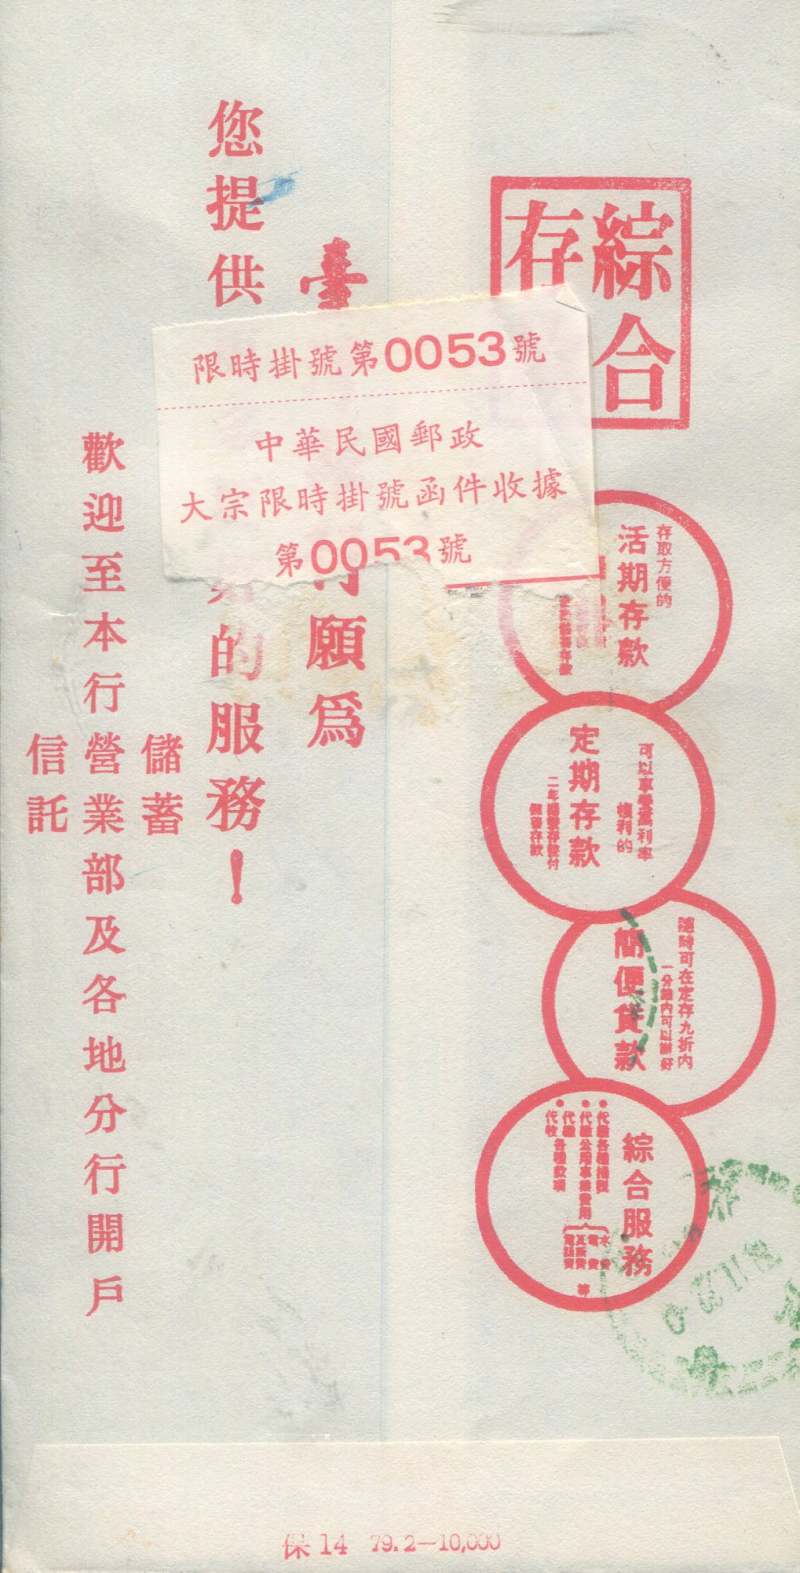 綜合
存
存取方便的
活期存款
可以享受高利率
權利的
定期存款
二年
儲蓄存款
隨時可在定存九折內
一分鐘內可以辦好
簡便貸款
綜合服務
代繳各種稅捐
代繳公用事業費用
水費
電費
瓦斯費
電話費
等
代收各種款項
臺
行願為
您提供
的服務!
儲蓄
信託
歡迎至本行營業部及各地分行開戶
限時掛號第0053號
中華民國郵政
大宗限時掛號函件收據
第0053號
保14 79.2—10,000